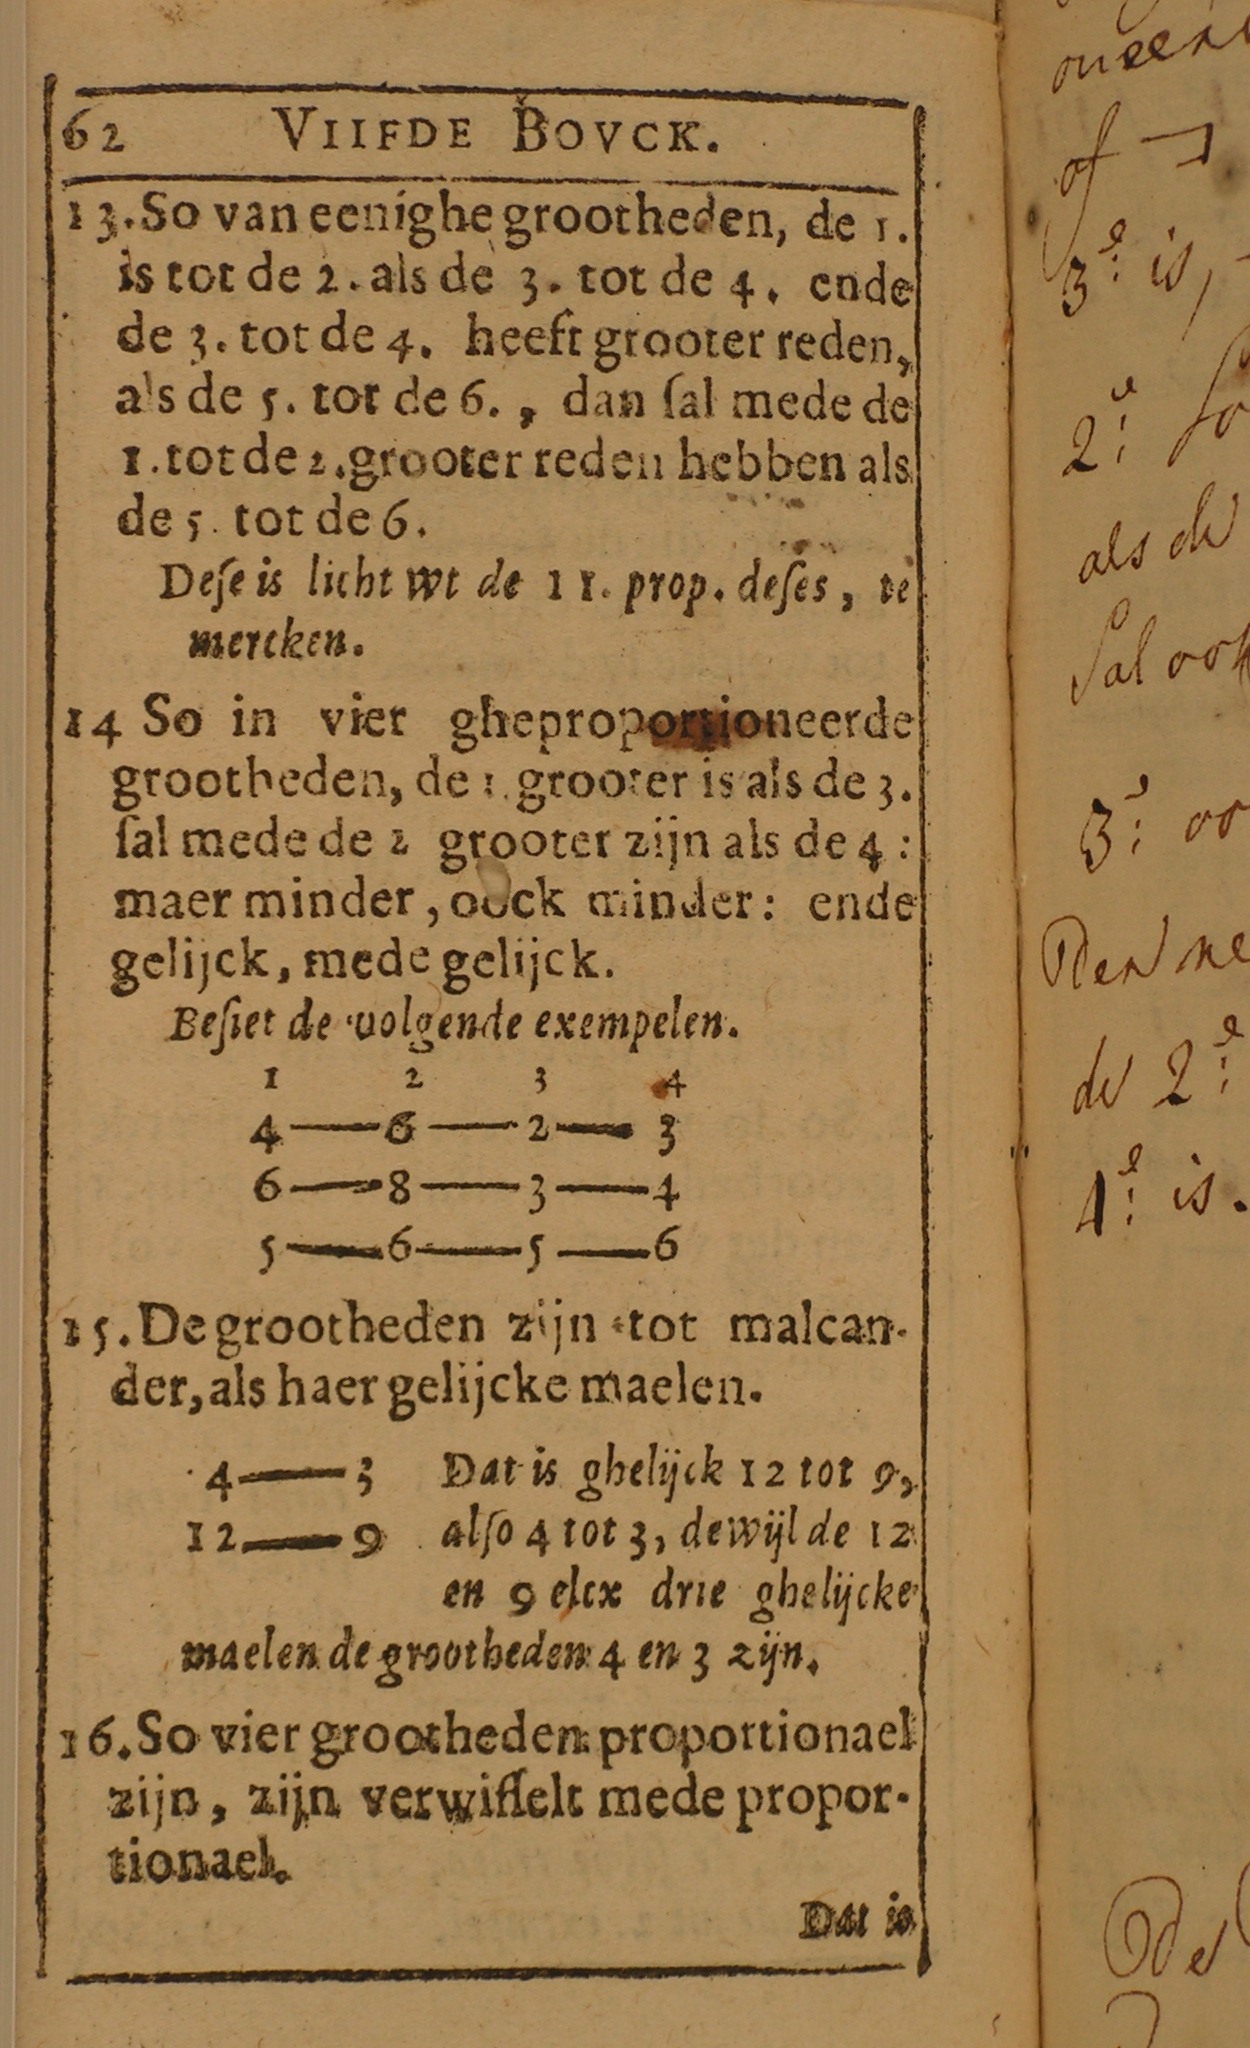 62 VIIFDE BOVCK.
13. So van eenighe grootheden, de 1.
is tot de 2. als de 3. tot de 4. ende
de 3. tot de 4. heeft grooter reden,
als de 5. tot de 6., dan ſal mede de
1. tot de 2. grooter reden hebben als
de 5. tot de 6.
Deſe is licht wt de 11. prop. deſes, te
mercken.
14 So in vier gheproportioneerde
grootheden, de 1. grooter is als de 3.
ſal mede de 2 grooter zijn als de 4:
maer minder, oock minder: ende
gelijck, mede gelijck.
Beſiet de volgende exempelen.
1 2 3 4
4 — 6 — 2 — 3
6 — 8 — 3 — 4
5 — 6 — 5 — 6
15. De grootheden zijn tot malcan-
der, als haer gelijcke maelen.
4 — 3 Dat is ghelijck 12 tot 9,
12 — 9 alſo 4 tot 3, dewijl de 12
en 9 elcx drie ghelijcke
maelen de grootheden 4 en 3 zijn.
16. So vier grootheden proportionael
zijn, zijn verwiſſelt mede propor-
tionael.
Dat is
of
3e: is,
2e: So
als de
Sal ook
3:
de 2e:
4e: is.
De